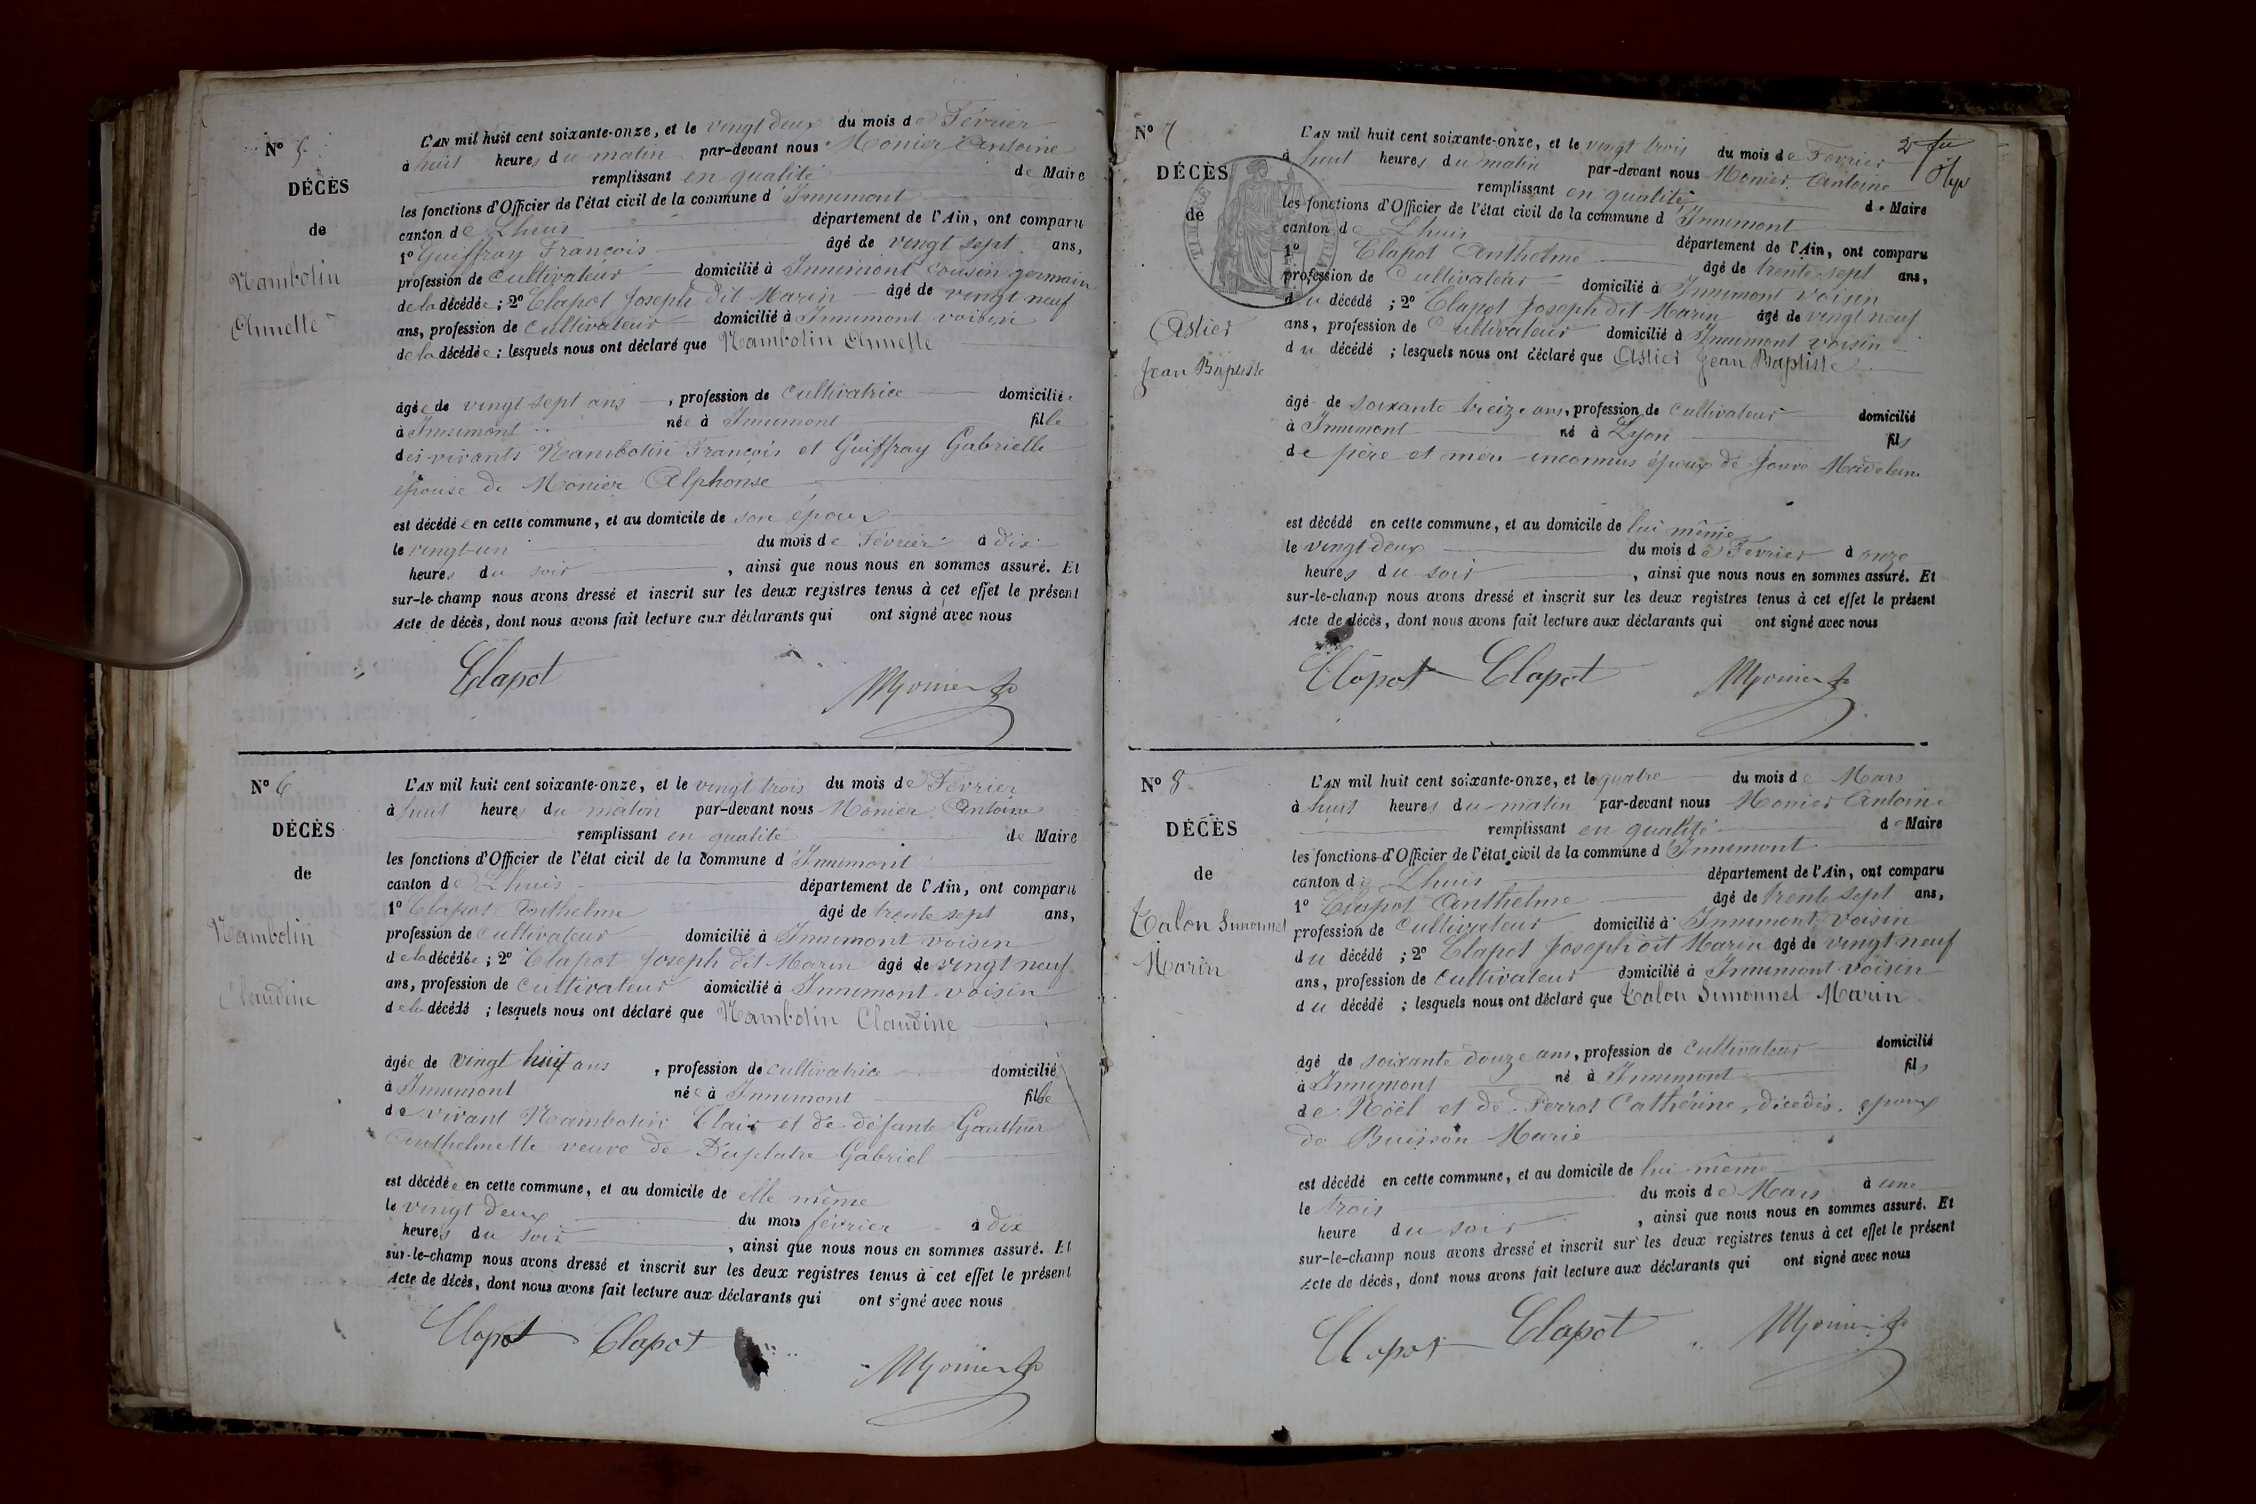 N° 5
DÉCÈS
de
Nambotin
Annette
L'AN mil huit cent soixante-onze, et le vingt deux du mois de Février
à huit heures du matin par-devant nous Monier Antoine
remplissant en qualité de Maire
les fonctions d'Officier de l'état civil de la commune d'Innimont
canton de Lhuis département de l'Ain, ont comparu
1° Guiffray François âgé de vingt sept ans,
profession de cultivateur domicilié à Innimont cousin germain
de la décédée ; 2° Clapot Joseph dit Marin âgé de vingt neuf
ans, profession de cultivateur domicilié à Innimont voisin
de la décédée ; lesquels nous ont déclaré que Nambotin Annette
âgée de vingt sept ans, profession de cultivatrice domiciliée
à Innimont née à Innimont fille
des vivants Nambotin François et Guiffray Gabrielle
épouse de Monier Alphonse
est décédée en cette commune, et au domicile de son époux
le vingt-un du mois de Février à dix
heures du soir, ainsi que nous nous en sommes assuré. Et
sur-le-champ nous avons dressé et inscrit sur les deux registres tenus à cet effet le présent
Acte de décès, dont nous avons fait lecture aux déclarants qui ont signé avec nous
Clapot Monier
N° 6
DÉCÈS
de
Nambotin
Claudine
L'AN mil huit cent soixante-onze, et le vingt trois du mois de Février
à huit heures du matin par-devant nous Monier Antoine
remplissant en qualité de Maire
les fonctions d'Officier de l'état civil de la commune d'Innimont
canton de Lhuis département de l'Ain, ont comparu
1° Clapot Anthelme âgé de trente sept ans,
profession de cultivateur domicilié à Innimont voisin
de la décédée ; 2° Clapot Joseph dit Marin âgé de vingt neuf
ans, profession de cultivateur domicilié à Innimont voisin
de la décédé ; lesquels nous ont déclaré que Nambotin Claudine
âgée de vingt huit ans, profession de cultivatrice domicilié
à Innimont née à Innimont fille
de vivant Nambotin Clair et de défunte Gauthier
Anthelmette veuve de Duplatre Gabriel
est décédée en cette commune, et au domicile de elle même
le vingt deux du mois février à dix
heures du soir, ainsi que nous nous en sommes assuré. Et
sur-le-champ nous avons dressé et inscrit sur les deux registres tenus à cet effet le présent
Acte de décès, dont nous avons fait lecture aux déclarants qui ont signé avec nous
Clapot Clapot Monier
N° 7
DÉCÈS
de
Astier
Jean Baptiste
L'AN mil huit cent soixante-onze, et le vingt trois du mois de Février
à huit heures du matin par-devant nous Monier Antoine
remplissant en qualité de Maire
les fonctions d'Officier de l'état civil de la commune d'Innimont
canton de Lhuis département de l'Ain, ont comparu
1° Clapot Anthelme âgé de trente sept ans,
profession de cultivateur domicilié à Innimont voisin
du décédé ; 2° Clapot Joseph dit Marin âgé de vingt neuf
ans, profession de cultivateur domicilié à Innimont voisin
du décédé ; lesquels nous ont déclaré que Astier Jean Baptiste
âgé de soixante treize ans, profession de cultivateur domicilié
à Innimont né à Lyon fils
de père et mère inconnus époux de Jouve Madeleine
est décédé en cette commune, et au domicile de lui même
le vingt deux du mois de Février à onze
heures du soir, ainsi que nous nous en sommes assuré. Et
sur-le-champ nous avons dressé et inscrit sur les deux registres tenus à cet effet le présent
Acte de décès, dont nous avons fait lecture aux déclarants qui ont signé avec nous
Clapot Clapot Monier
N° 8
DÉCÈS
de
Talon Simonnet
Marin
L'AN mil huit cent soixante-onze, et le quatre du mois de Mars
à huit heures du matin par-devant nous Monier Antoine
remplissant en qualité de Maire
les fonctions d'Officier de l'état civil de la commune d'Innimont
canton de Lhuis département de l'Ain, ont comparu
1° Clapot Anthelme âgé de trente sept ans,
profession de cultivateur domicilié à Innimont voisin
du décédé ; 2° Clapot Joseph dit Marin âgé de vingt neuf
ans, profession de cultivateur domicilié à Innimont voisin
du décédé ; lesquels nous ont déclaré que Talon Simonnet Marin
âgé de soixante douze ans, profession de cultivateur domicilié
à Innimont né à Innimont fils
de Noël et de Perrot Cathérine, décédés, époux
de Buisson Marie
est décédé en cette commune, et au domicile de lui même
le trois du mois de Mars à une
heure du soir, ainsi que nous nous en sommes assuré. Et
sur-le-champ nous avons dressé et inscrit sur les deux registres tenus à cet effet le présent
Acte de décès, dont nous avons fait lecture aux déclarants qui ont signé avec nous
Clapot Clapot Monier